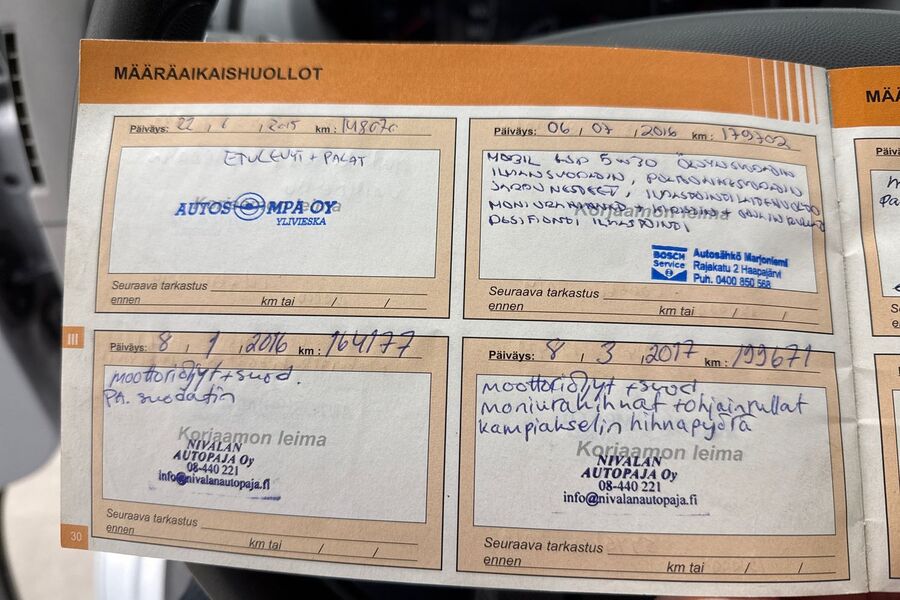 MÄÄRÄAIKAISHUOLLOT
Päiväys: 22 / / 2015 km:
ETULEVYT + PALAT
Korjaamon leima
AUTOSOMPA OY
YLIVIESKA
Seuraava tarkastus
ennen km tai / /
Päiväys: 06 , 07 , 2016 km: 179702
MOBIL ESP 5W30 ÖLJYNSUODATIN
ILMANSUODATIN, POLTTOAINESUODATIN
JARRUNESTEET, ILMASTOINTILAITEHUOLTO
MONIURAHIHNAT +
DESIFIOINTI ILMASTOINTI
Korjaamon leima
BOSCH Service
Autosähkö Marjoniemi
Rajakatu 2 Haapajärvi
Puh. 0400 850 568
Seuraava tarkastus
ennen km tai / /
III
Päiväys: 8 , 1 , 2016 km: 164177
moottoriöljyt + suod.
PA. suodatin
Korjaamon leima
NIVALAN
AUTOPAJA Oy
08-440 221
info@nivalanautopaja.fi
Seuraava tarkastus
ennen km tai / /
Päiväys: 8 , 3 , 2017 km: 199671
moottoriöljyt + suod
moniurahihnat + ohjainrullat
kampiakselin hihnapyörä
Korjaamon leima
NIVALAN
AUTOPAJA Oy
08-440 221
info@nivalanautopaja.fi
Seuraava tarkastus
ennen km tai / /
30